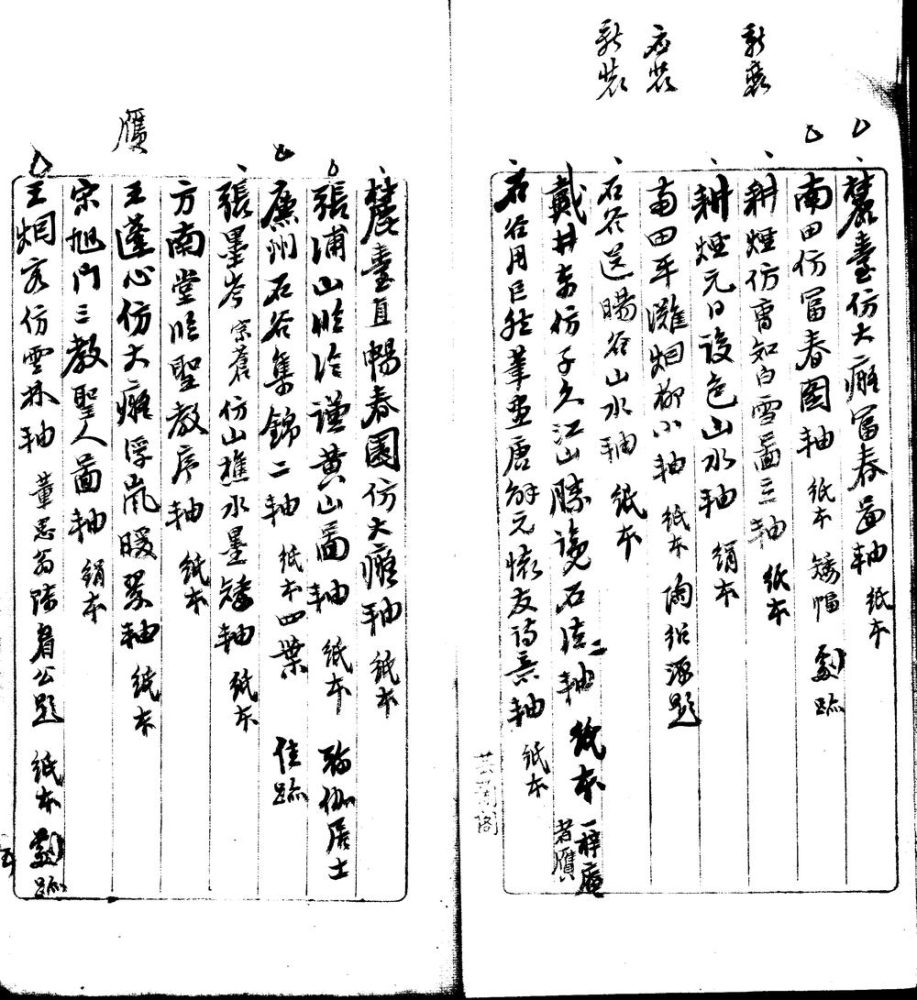 麓臺仿大癡富春圖軸 紙本
南田仿富春圖軸 紙本 矮幅 劇跡
耕煙仿曹知白雪圖立軸 紙本
耕煙元日設色山水軸 絹本
南田平灘烟柳小軸 紙本 陶紹源題
石谷送暘谷山水軸 紙本
戴井東仿子久江山勝覽 石濤軸 紙本 一梓庵者贋
石谷用巨然筆畫唐解元懷友詩意軸 紙本
新裝
新裝
麓臺直暢春園仿大癡軸 紙本
張浦山臨 黃山圖軸 紙本 瑜伽居士
廉州石谷集錦二軸 紙本四葉 佳跡
張墨岑宗蒼仿山樵水墨矮軸 紙本
方南堂臨聖教序軸 紙本
王蓬心仿大癡浮嵐暖翠軸 紙本
贋
宋旭門三教聖人圖軸 絹本
王烟客仿雲林軸 董思翁陳眉公題 紙本 劇跡